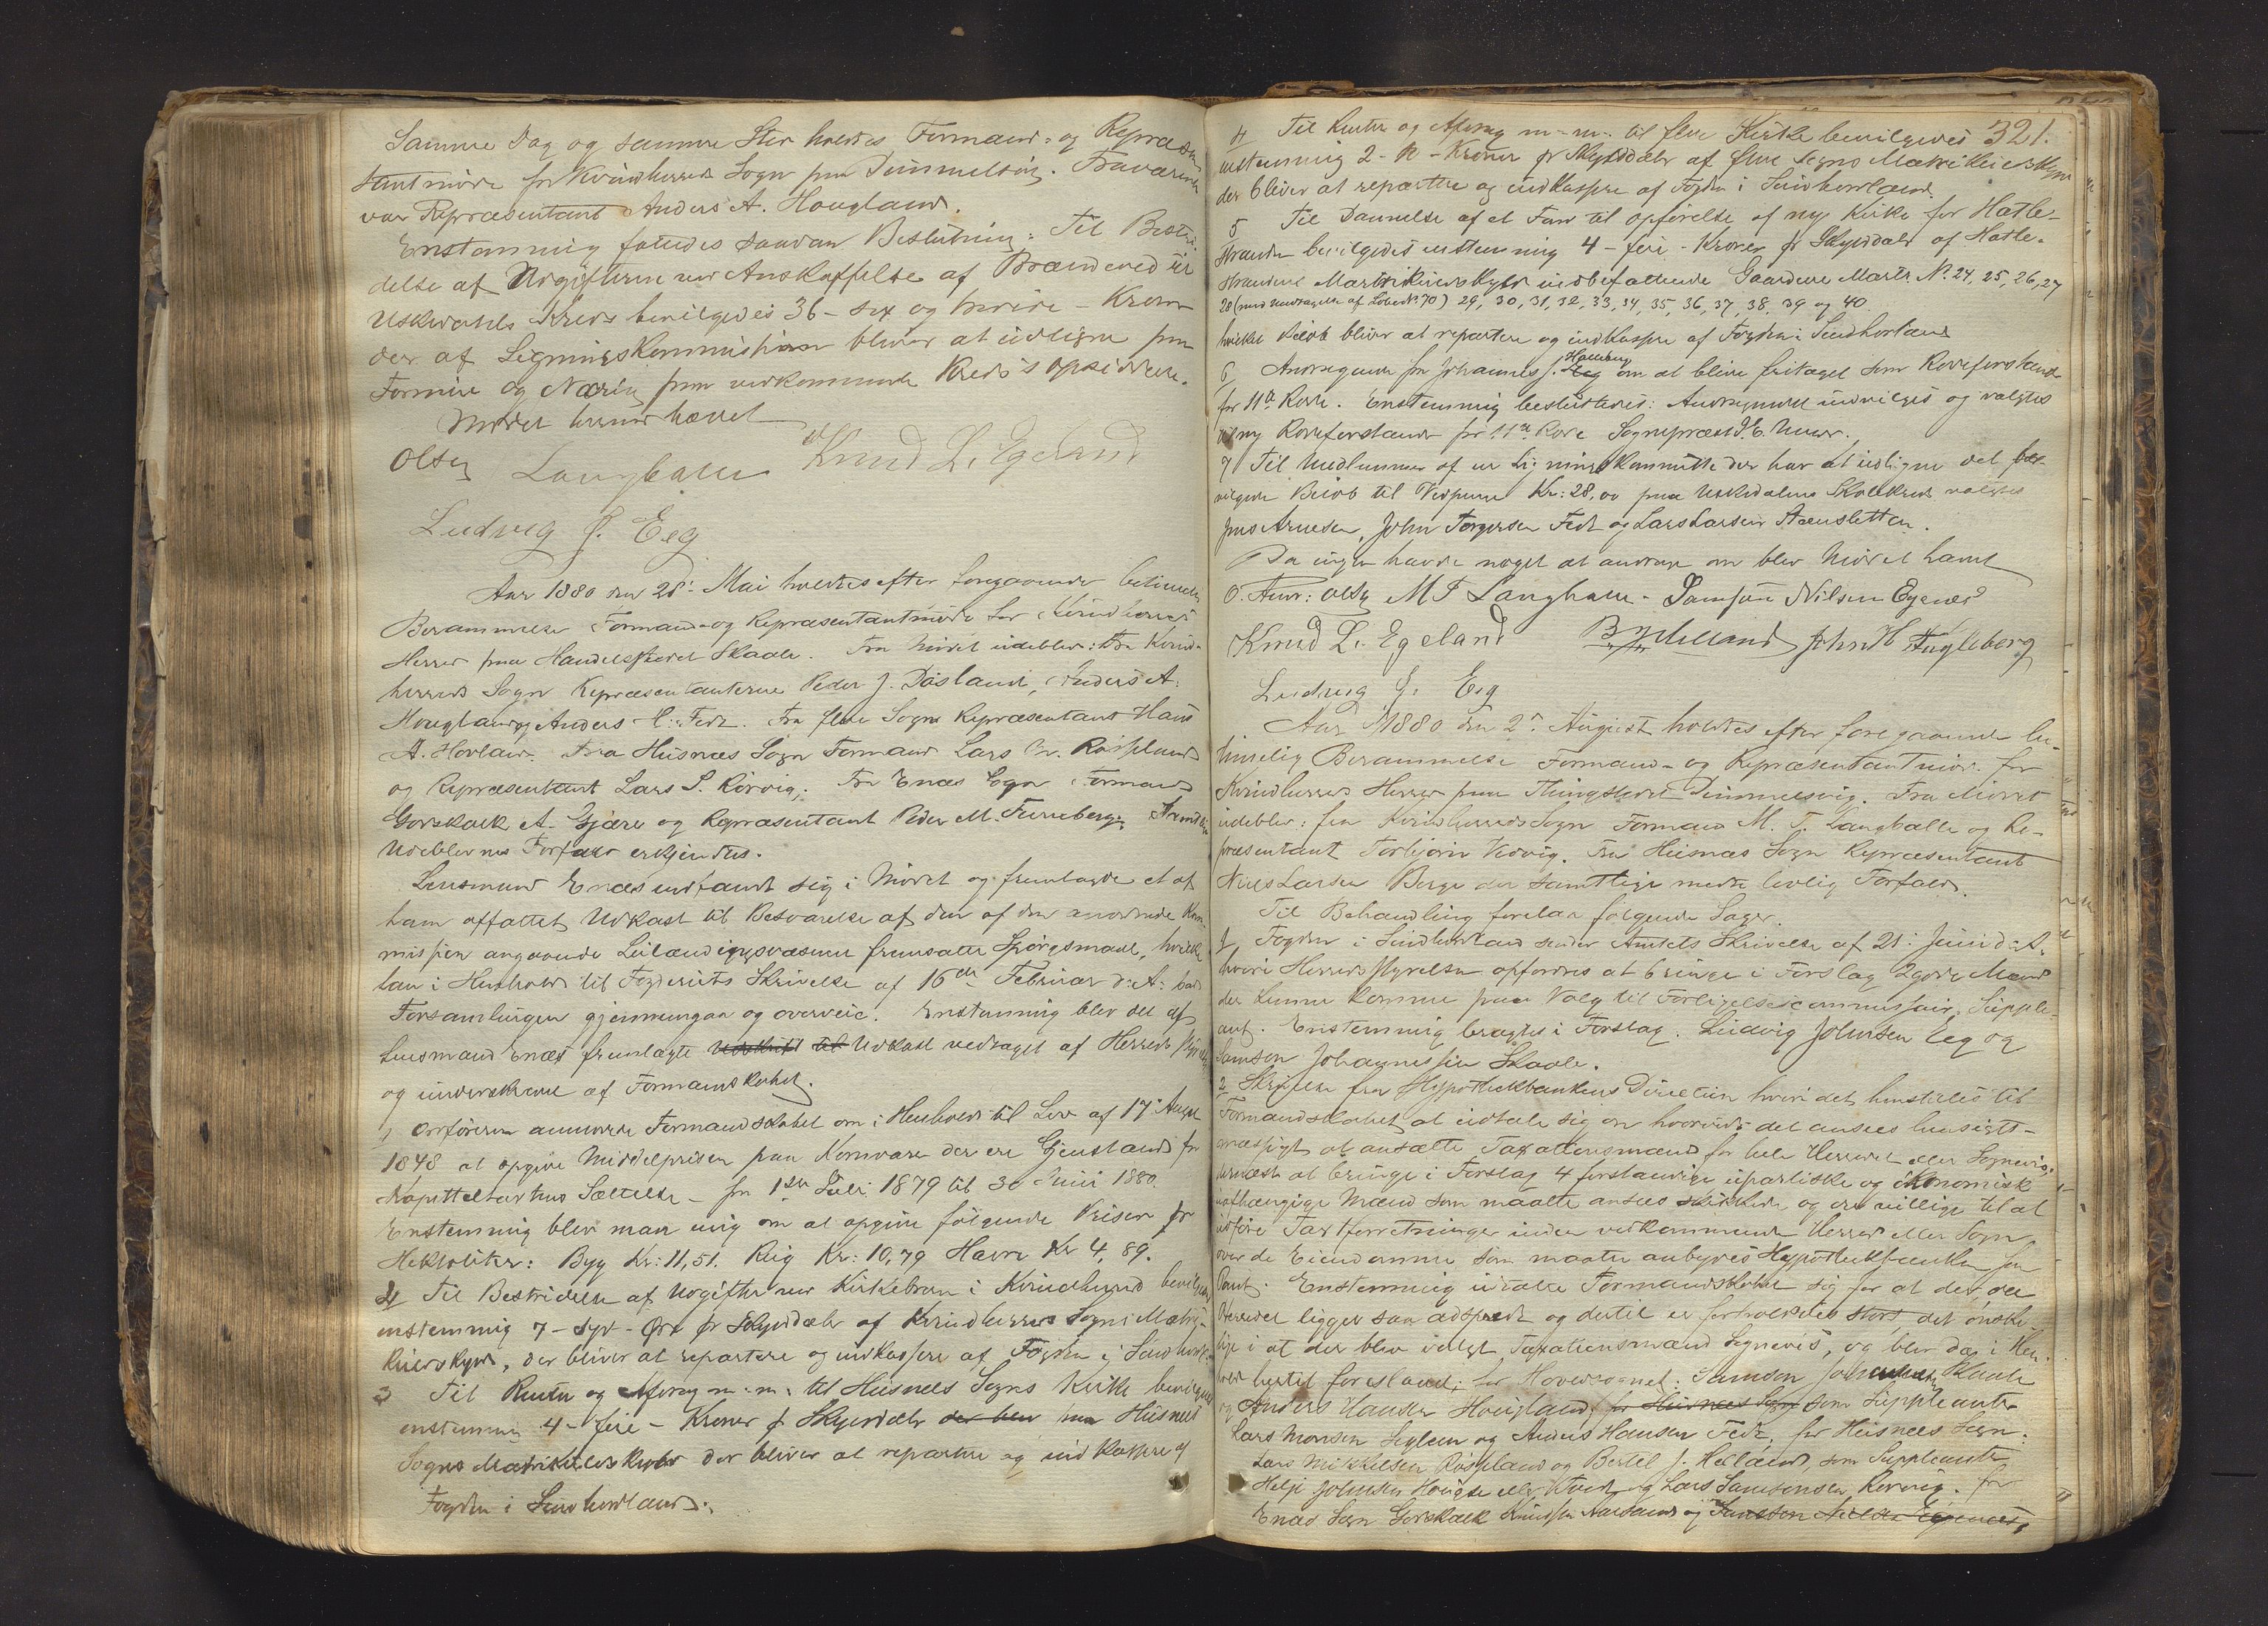 Samme Dag og samme Sted holdtes Formand- og Repræsen
tantmöde for Kvindherreds Sogn paa Dimmelsvig. Fraværende
var Repræsentant Anders A. Hougland.
Enstemmig fattedes saadan Beslutning: Til Bestri-
delse af Udgifterne ved Anskaffelse af Brændeved til
Uskedals Kreds bevilgedes 36 - sex og tredive - Kroner
der af Ligningskommission bliver at udligne paa
Formue og Næring paa vedkommende Kreds's Opsiddere.
Mödet hermed hævet
Olsen Langballe Knud L. Egeland
Ludvig J. Eeg
Aar 1880 den 28: Mai holdtes efter foregaaende betimelig
Berammelse Formand- og Repræsentantmöde for Kvindherreds
Herred paa Handelsstedet Skaale. Fra Mödet udeblev: Fra Kvind-
herreds Sogn Repræsentanterne Peder J. Døsland, Anders A.
Hougland og Anders H. Fedt. Fra Ølve Sogn Repræsentant Hans
A. Hovland. Fra Husnæs Sogn Formand Lars M. Røsseland
og Repræsentant Lars S. Rörvig. Fra Enæs Sogn Formand
Gorskalk A. Gjære og Repræsentant Peder M. Furreberg. Samtlige
Udeblevnes Forfald erkjendtes.
Lensmand Enæs indfandt sig i Mödet og fremlagde et af
ham affattet Udkast til Besvarelse af den af den anordnede Kom
mission angaaende Leilændingsvæsenet fremsatte Spörgsmaal, hvilket
han i Henhold til Fogderiets Skrivelse af 16de Februar d: A: bad
Forsamlingen gjennemgaa og overveie. Enstemmig blev det af
Lensmand Enæs fremlagte Udskrift til Udkast vedtaget af Herreds styrelsen
og underskrevet af Formandskabet.
1 Ordföreren anmodede Formandskabet om i Henhold til Lov af 17: August
1848 at opgive Middelprisen paa Kornvarer der ere Gjenstand for
Kapitteltaxtens Sættelse - fra 1ste Juli 1879 til 30 Juni 1880.
Enstemmig blev man enig om at opgive fölgende Priser pr
Hektoliter: Byg Kr: 11,51. Rug Kr: 10,79 Havre Kr 4,89.
2 Til Bestridelse af Udgifter ved Kirkebrand i Kvindherred bevilgedes
enstemmig 7 - syv - Øre pr Skylddaler af Kvindherreds Sogns Matri-
kulskyld, der bliver at repartere og indkassere af Fogden i Söndhordl:
3 Til Renter og Afdrag m:m: til Husnæs Sogns Kirke bevilgedes
enstemmig 4 - fire - Kroner pr Skylddaler der ble paa Husnæs
Sogns Matrikulskyld der bliver at repartere og indkassere af
Fogden i Söndhordland.
321.
4 Til Renter og Afdrag m-m- til Ølve Kirke bevilgedes
enstemmig 2 - to - Kroner pr Skylddaler af Ølve Sogns Matrikulskyld
der bliver at repartere og indkassere af Fogden i Söndhordland.
5 Til Dannelse af et Fond til Opförelse af ny Kirke for Hatle-
stranden bevilgedes enstemmig 4 - fire - Kroner pr Skylddaler af Hatle-
strandens Matrikulskyld indbefattende Gaardene Matr. No. 24, 25, 26, 27
28 (med Undtagelse af LöbeNr. 70) 29, 30, 31, 32, 33, 34, 35, 36, 37, 38, 39 og 40.
hvilket Belöb bliver at repartere og indkassere af Fogden i Söndhordland
6 Andragende fra Johannes J. Eeg om at blive fritaget som Rodeforstander
for 11te Rode. Enstemmig besluttedes: Andragendet indvilges og valgtes
til ny Rodeforstander for 11te Rode Sognepræst J. E. Unger.
7 Til Medlemmer af en Ligningskommitte der har at udligne det be-
vilgede Belöb til Vedpenge Kr: 28,00 paa Uskedalens Skolekreds valgtes
Jens Arnesen, John Torgersen Fedt og Lars Larsen Stensletten.
Da ingen havde noget at andrage om blev Mödet hævet
O. Andr: Olsen M T Langballe - Samson Nilsen Egenæs
Knud L. Egeland B. J. Helland John H Fugleberg
Ludvig J. Eeg
Aar 1880 den 2: August holdtes efter foregaaende be-
timelig Berammelse Formand- og Repræsentantmöde for
Kvindherreds Herred paa Thingstedet Dimmelsvig. Fra Mödet
udeblev: fra Kvindherreds Sogn Formand M. T. Langballe og Re-
præsentant Torbjörn Vedvig. Fra Husnæs Sogn Repræsentant
Niels Larsen Berge der samtlige meldte lovlig Forfald.
Til Behandling forelaa fölgende Sager.
1, Fogden i Söndhordland sender Amtets Skrivelse af 21: Juni d: A.
hvori Herredsstyrelsen opfordres at bringe i Forslag 2 gode Mænd
der kunne komme paa Valg til Forligelsescommissair, Supple-
ant. Enstemmig bragtes i Forslag. Ludvig Johnsen Eeg og
Samson Johannessen Skaale.
2 Skrivelse fra Hypothekbankens Direction hvori det henstilles til
Formandskabet at udtale sig om hvorvidt det ansees hensigts-
mæssigt at ansætte Taxationsmænd for hele Herredet eller Sognevis,
dernæst at bringe i Forslag 4 forstandige upartiske og ökonomisk
uafhængige Mænd som maatte ansees skikkede og ere villige til at
udföre Taxtforretninger inden vedkommende Herred eller Sogn
over de Eiendomme som maatte anbydes Hypothekbanken som
Pant. Enstemmig udtalte Formandskabet sig for at der, da
Herredet ligger saa adspredt og dertil er forholdsvis stort, det önske-
lige i at der blev valgt Taxationsmænd Sognevis, og blev da i Hen-
hold hertil foreslaaet: for Hovedsognet: Samson Johannessen Skaale
og Anders Hansen Hougland, for Husnæs Sogn som Suppleanter
Lars Monsen Seglem og Anders Hansen Fedt, for Husnæs Sogn:
Lars Mikkelsen Røsseland og Bertel J. Helland, som Suppleanter
Helje Johnsen og Lars Samsonsen Rörvig. for
Enæs Sogn Gorskalk Knudsen og Samson Nielsen Egenæs,